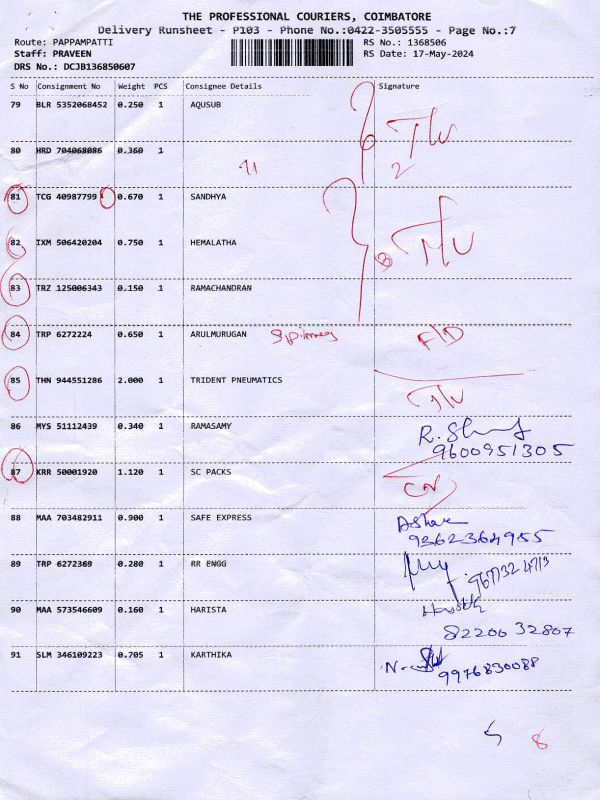 THE PROFESSIONAL COURIERS, COIMBATORE
Delivery Runsheet - P103 - Phone No.:0422-3505555 - Page No.:7
Route: PAPPAMPATTI RS No.: 1368506
Staff: PRAVEEN RS Date: 17-May-2024
DRS No.: DCJB136850607
S No Consignment No Weight PCS Consignee Details Signature
79 BLR 5352068452 0.250 1 AQUSUB
80 HRD 704068086 0.360 1
2
81 TCG 40987799 0.670 1 SANDHYA
82 IXM 506420204 0.750 1 HEMALATHA
3
83 TRZ 125006343 0.150 1 RAMACHANDRAN
84 TRP 6272224 0.650 1 ARULMURUGAN F/D
85 THN 944551286 2.000 1 TRIDENT PNEUMATICS
86 MYS 51112439 0.340 1 RAMASAMY
9600951305
87 KRR 50001920 1.120 1 SC PACKS
CN
88 MAA 703482911 0.900 1 SAFE EXPRESS
9362364955
89 TRP 6272369 0.280 1 RR ENGG
90 MAA 573546609 0.160 1 HARISTA
8220032807
91 SLM 346109223 0.705 1 KARTHIKA
9976830088
5 8